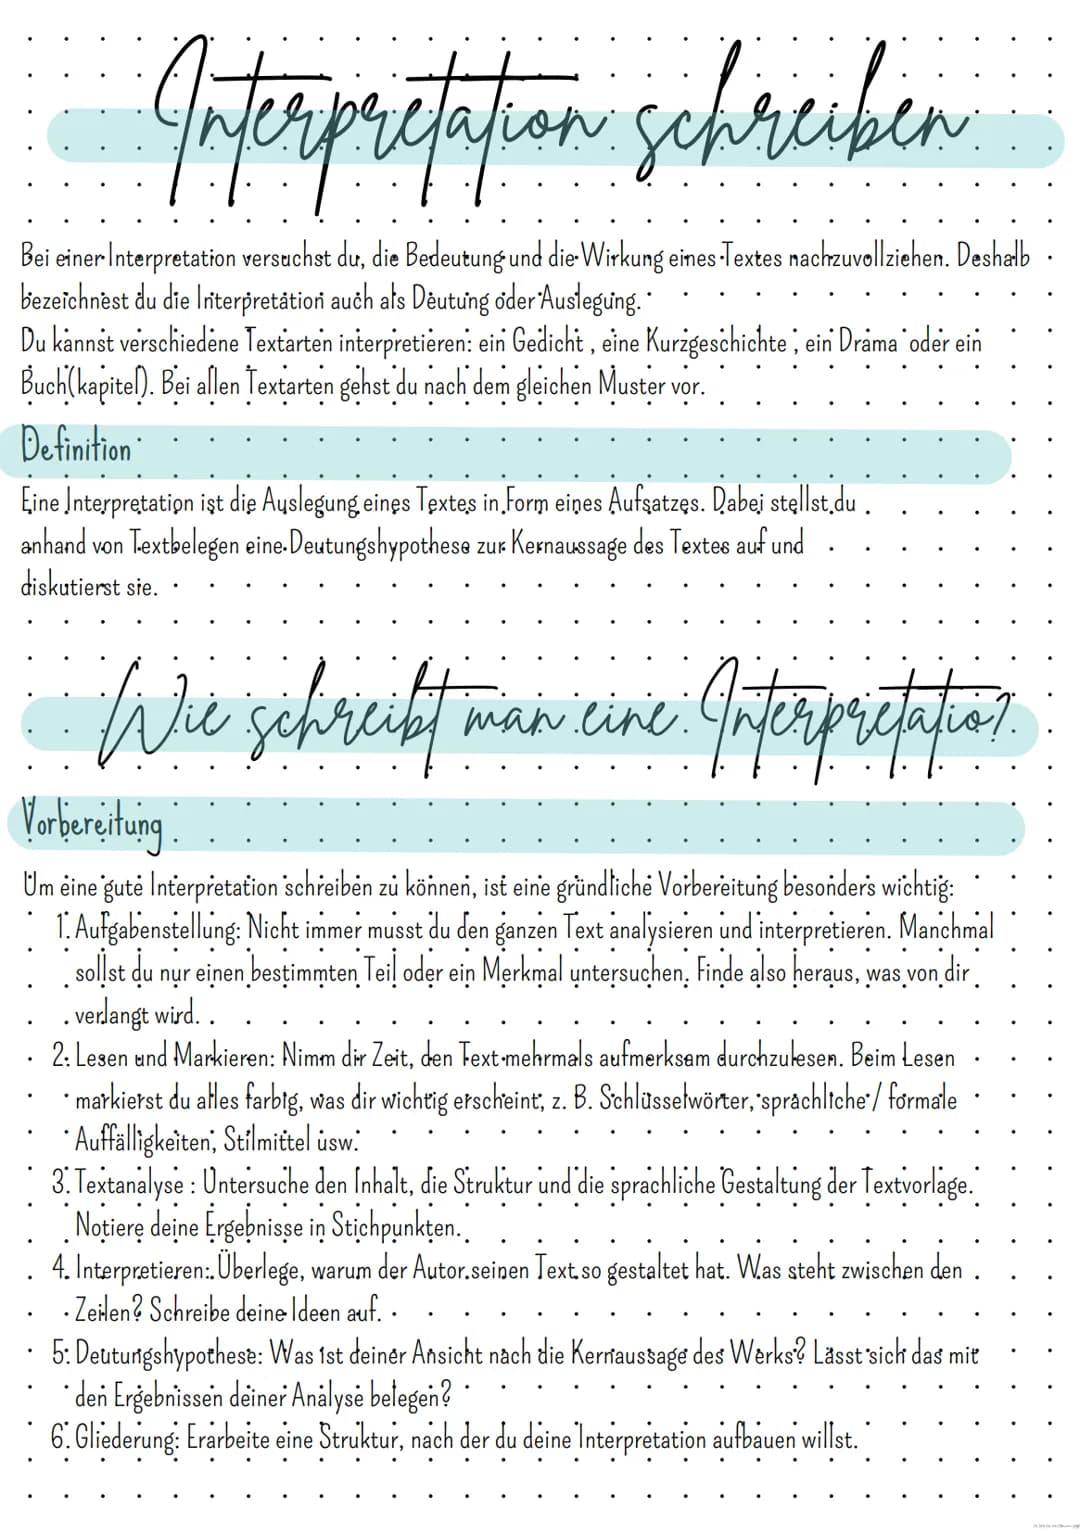 Interpretation schreiben
Bei einer Interpretation versuchst du, die Bedeutung und die Wirkung eines Textes nachzuvollziehen. Deshalb
bezeichnest du die Interpretation auch als Deutung oder Auslegung.
Du kannst verschiedene Textarten interpretieren: ein Gedicht , eine Kurzgeschichte , ein Drama oder ein
Buch(kapitel). Bei allen Textarten gehst du nach dem gleichen Muster vor.
Definition
Eine Interpretation ist die Auslegung eines Textes in Form eines Aufsatzes. Dabei stellst du
anhand von Textbelegen eine Deutungshypothese zur Kernaussage des Textes auf und
diskutierst sie.
Wie schreibt man eine Interpretatio?
Vorbereitung
Um eine gute Interpretation schreiben zu können, ist eine gründliche Vorbereitung besonders wichtig:
1. Aufgabenstellung: Nicht immer musst du den ganzen Text analysieren und interpretieren. Manchmal
sollst du nur einen bestimmten Teil oder ein Merkmal untersuchen. Finde also heraus, was von dir
verlangt wird.
2. Lesen und Markieren: Nimm dir Zeit, den Text mehrmals aufmerksam durchzulesen. Beim Lesen
markierst du alles farbig, was dir wichtig erscheint, z. B. Schlüsselwörter, sprachliche / formale
Auffälligkeiten, Stilmittel usw.
3. Textanalyse : Untersuche den Inhalt, die Struktur und die sprachliche Gestaltung der Textvorlage.
Notiere deine Ergebnisse in Stichpunkten.
4. Interpretieren: Überlege, warum der Autor seinen Text so gestaltet hat. Was steht zwischen den
Zeilen? Schreibe deine Ideen auf.
5. Deutungshypothese: Was ist deiner Ansicht nach die Kernaussage des Werks? Lässt sich das mit
den Ergebnissen deiner Analyse belegen?
6. Gliederung: Erarbeite eine Struktur, nach der du deine Interpretation aufbauen willst.